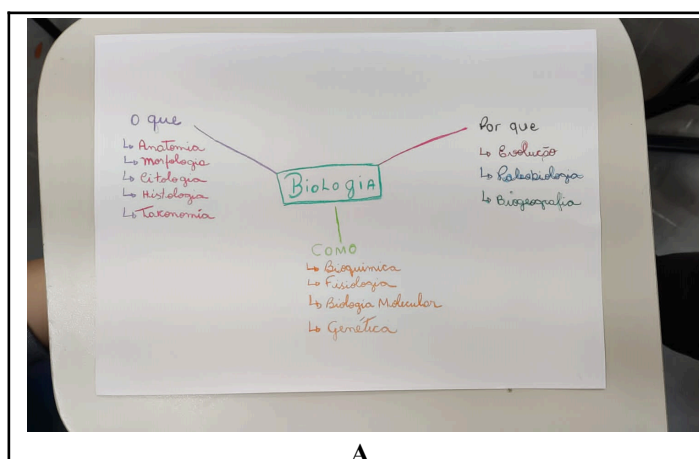 O que
↳ Anatomia
↳ Morfologia
↳ Citologia
↳ Histologia
↳ Taxonomia
Biologia
Por que
↳ Evolução
↳ Paleobiologia
↳ Biogeografia
Como
↳ Bioquímica
↳ Fisiologia
↳ Biologia Molecular
↳ Genética
A